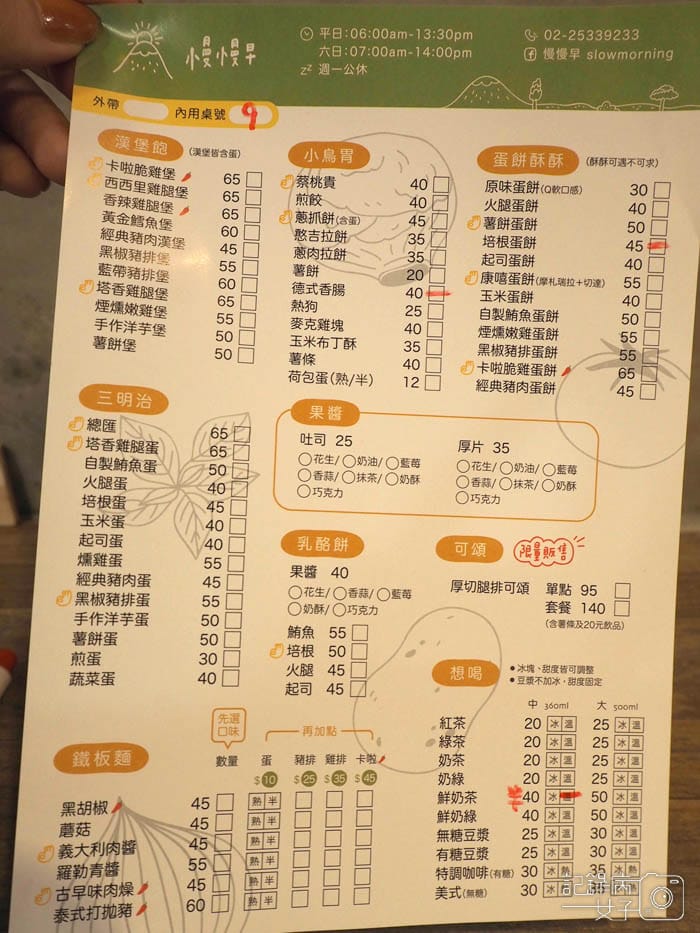 慢慢早
平日:06:00am-13:30pm
六日:07:00am-14:00pm
zz 週一公休
02-25339233
慢慢早 slowmorning
外帶 內用桌號 9
漢堡飽 (漢堡皆含蛋)
卡啦脆雞堡 65
西西里雞腿堡 65
香辣雞腿堡 65
黃金鱈魚堡 60
經典豬肉漢堡 45
黑椒豬排堡 55
藍帶豬排堡 60
塔香雞腿堡 65
煙燻嫩雞堡 55
手作洋芋堡 50
薯餅堡 50
小鳥胃
蔡桃貴 40
煎餃 40
蔥抓餅(含蛋) 45
憨吉拉餅 35
蔥肉拉餅 35
薯餅 20
德式香腸 40
熱狗 25
麥克雞塊 40
玉米布丁酥 35
薯條 40
荷包蛋(熟/半) 12
蛋餅酥酥 (酥酥可遇不可求)
原味蛋餅(Q軟口感) 30
火腿蛋餅 40
薯餅蛋餅 50
培根蛋餅 45
起司蛋餅 40
康嘻蛋餅(摩札瑞拉+切達) 55
玉米蛋餅 40
自製鮪魚蛋餅 50
煙燻嫩雞蛋餅 55
黑椒豬排蛋餅 55
卡啦脆雞蛋餅 65
經典豬肉蛋餅 45
三明治
總匯 65
塔香雞腿蛋 65
自製鮪魚蛋 50
火腿蛋 40
培根蛋 45
玉米蛋 40
起司蛋 40
燻雞蛋 55
經典豬肉蛋 45
黑椒豬排蛋 55
手作洋芋蛋 50
薯餅蛋 50
煎蛋 30
蔬菜蛋 40
果醬
吐司 25
花生/ 奶油/ 藍莓
香蒜/ 抹茶/ 奶酥
巧克力
厚片 35
花生/ 奶油/ 藍莓
香蒜/ 抹茶/ 奶酥
巧克力
乳酪餅
果醬 40
花生/ 香蒜/ 藍莓
奶酥/ 巧克力
鮪魚 55
培根 50
火腿 45
起司 45
可頌 限量販售
厚切腿排可頌 單點 95
套餐 140
(含薯條及20元飲品)
想喝
●冰塊、甜度皆可調整
●豆漿不加冰，甜度固定
中 360ml 大 500ml
紅茶 20 冰 溫 25 冰 溫
綠茶 20 冰 溫 25 冰 溫
奶茶 20 冰 溫 25 冰 溫
奶綠 20 冰 溫 25 冰 溫
鮮奶茶 40 冰 溫 50 冰 溫
鮮奶綠 40 冰 溫 50 冰 溫
無糖豆漿 25 冰 溫 30 冰 溫
有糖豆漿 25 冰 溫 30 冰 溫
特調咖啡(有糖) 30 冰 熱 35 冰 熱
美式(無糖) 30 冰 熱 35 冰 熱
鐵板麵
先選口味
再加點
數量 蛋 豬排 雞排 卡啦
$10 $25 $35 $45
黑胡椒 45 熟 半
蘑菇 45 熟 半
義大利肉醬 45 熟 半
羅勒青醬 55 熟 半
古早味肉燥 45 熟 半
泰式打拋豬 60 熟 半
記錄肉女子